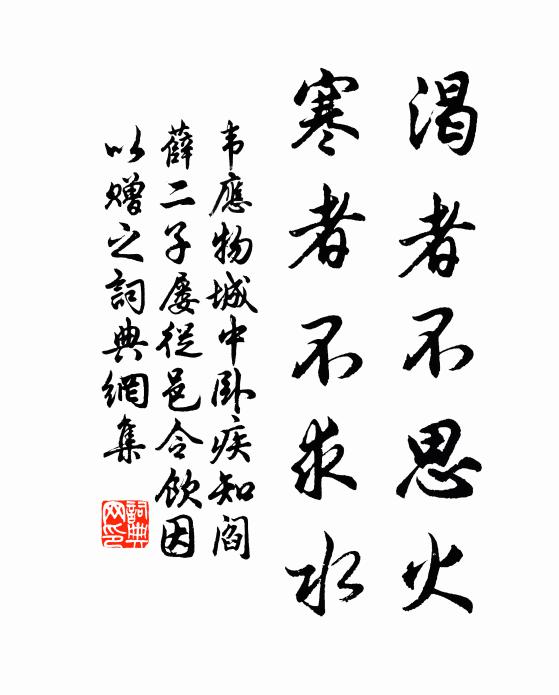 渴者不思火
寒者不求水
韦應物城中卧疾知阎
薛二子屡從邑令飲因
以赠之詞典網集
詞典
网印